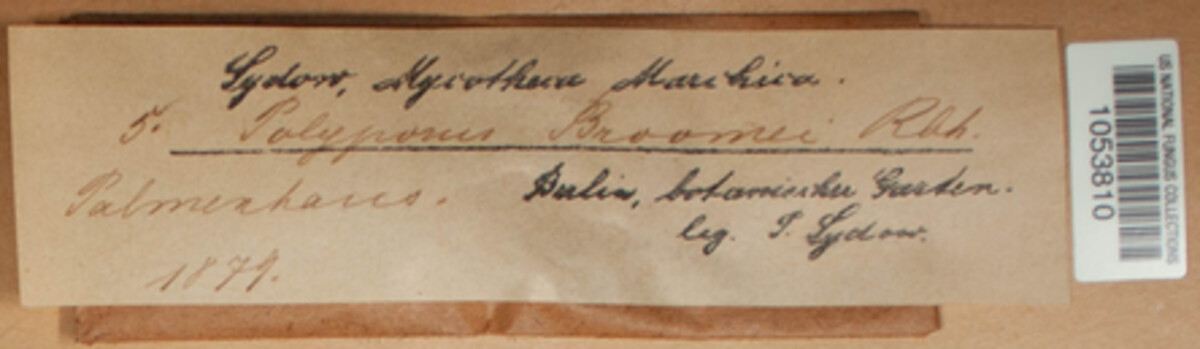 Sydow, Mycotheca Marchica.
5. Polyporus Broomei Rbh.
Palmenhaus. Berlin, botanischer Garten.
leg. P. Sydow.
1879.
US NATIONAL FUNGUS COLLECTIONS
1053810